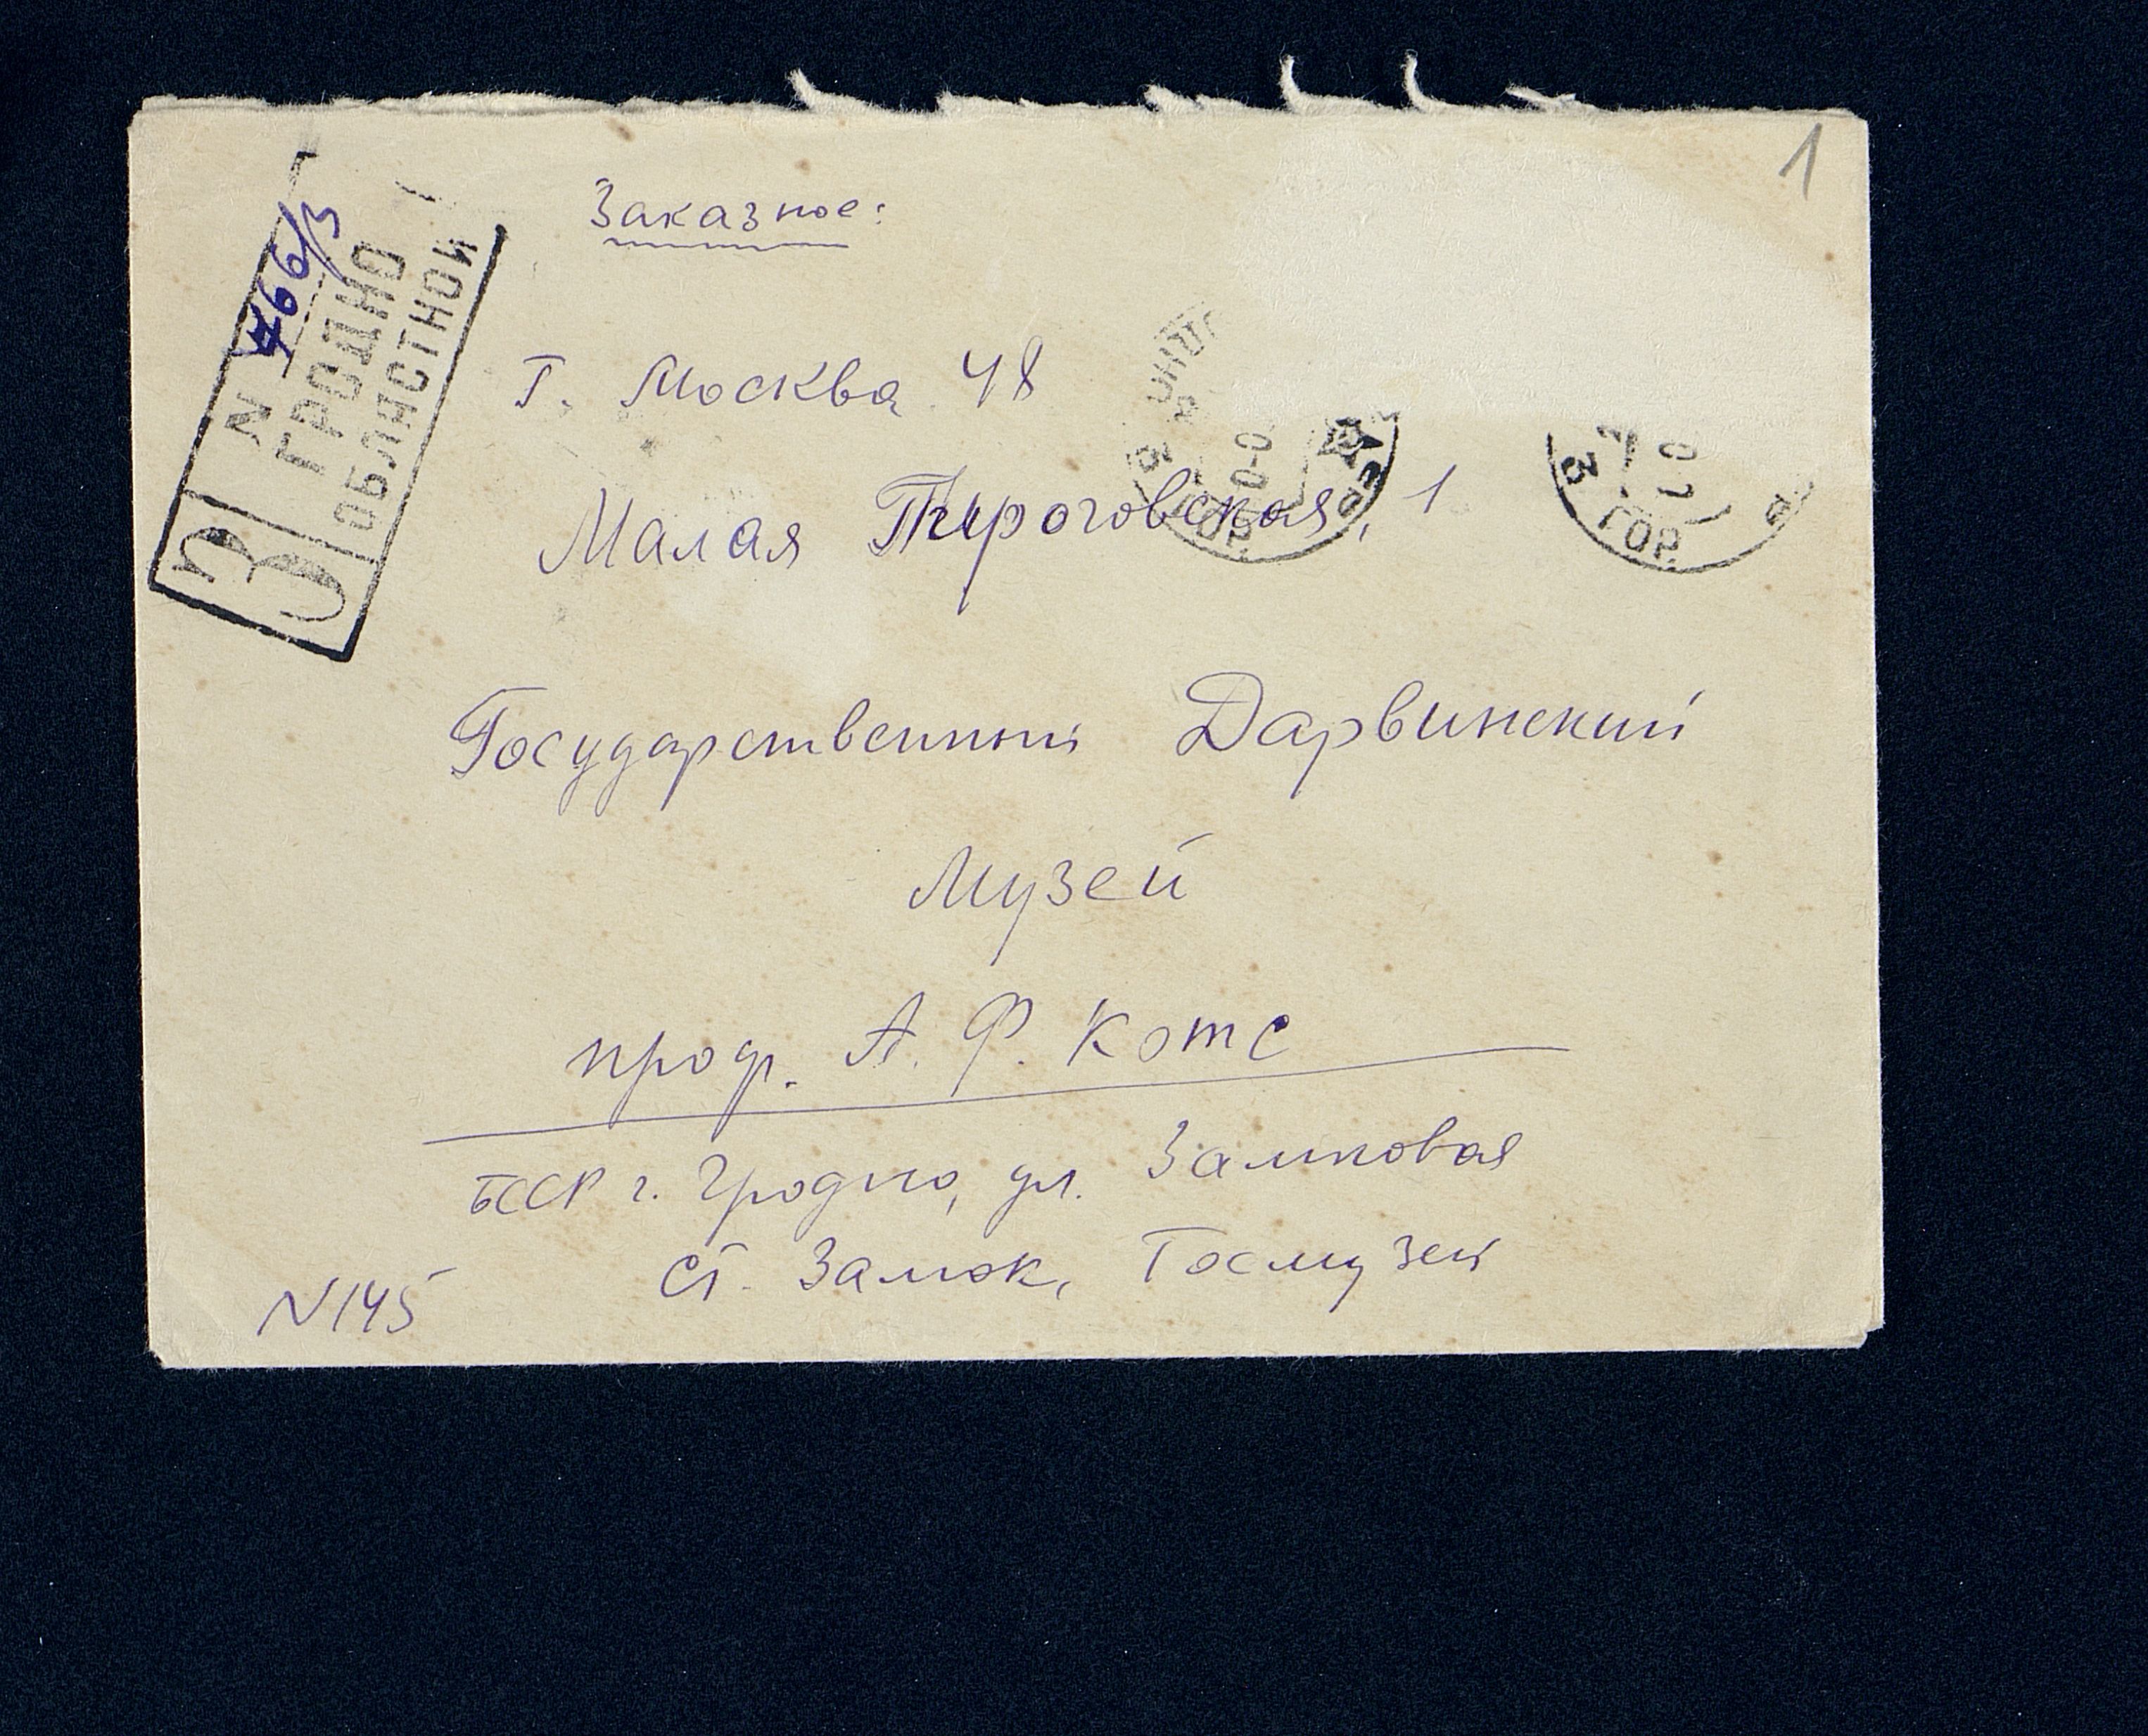 1
Заказное:
З
N 766/3
ГРОДНО
ОБЛАСТНОЙ
г. Москва 48
Малая Пироговская, 1
ГОР.
З ГОР.
Государственный Дарвинский
Музей
проф. А. Ф. Котс
БССР г. Гродно, ул. Замковая
Ст. Замок, Госмузей
N145